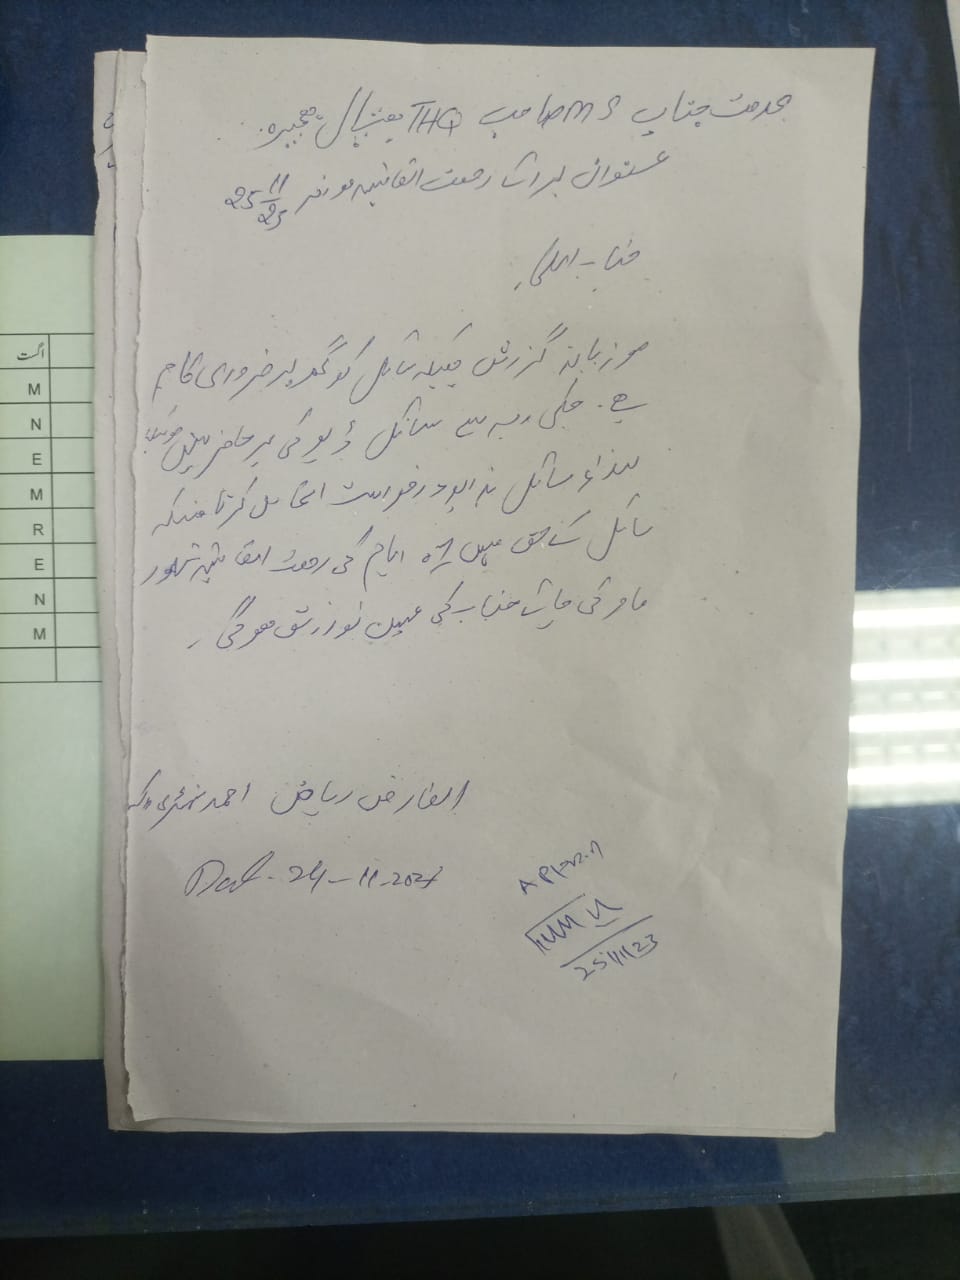 بخدمت جناب MS صاحب THQ ہسپتال ہجیرہ
عنوان براۓ رخصت اتفاقیہ مورخہ 25/11/23
جناب عالی!
مودبانہ گزارش ہیکہ سائل کو گھر پر ضروری کام
ہے۔ جسکی وجہ سے سائل ڈیوٹی پر حاضر نہیں
لہذا سائل بذریعہ درخواست التماس کرتا ہیکہ
سائل کے حق میں ایام کی رخصت اتفاقیہ منظور
فرمائی جاۓ جناب کی عین نوازش ہوگی۔
العارض ریاض احمد
Dat. 24-11-202
25/11/23
اگست
M
N
E
M
R
E
N
M